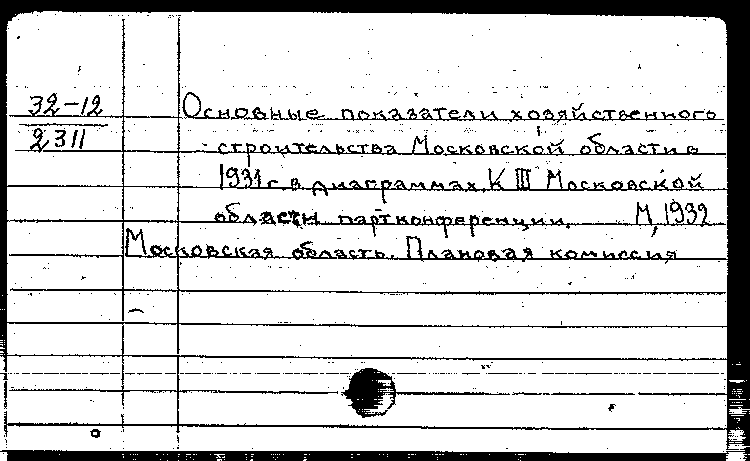 32-12
2311
Основные показатели хозяйственного
строительства Московской области в
1931 г. в диаграммах. К III Московской
области партконференции. М, 1932
Московская область. Плановая комиссия